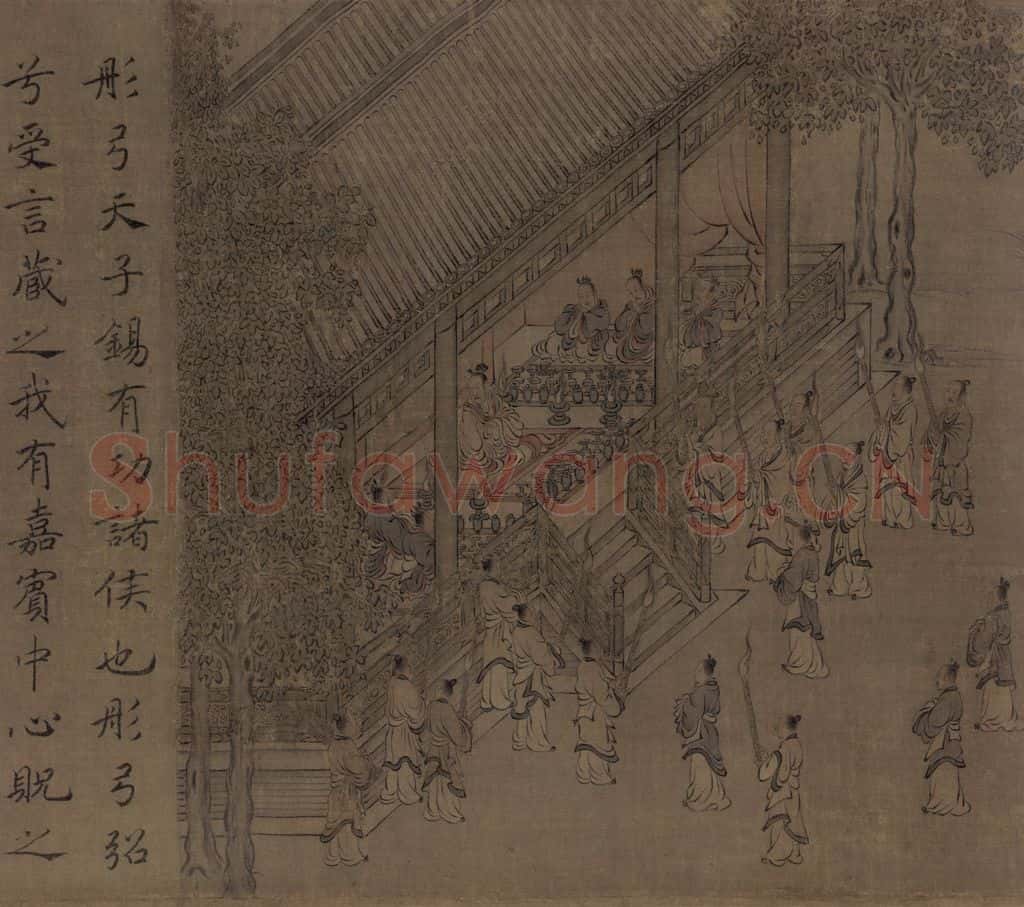 彤弓天子錫有功諸侯也彤弓弨
兮受言蔵之我有嘉賓中心貺之
Shufawang.CN